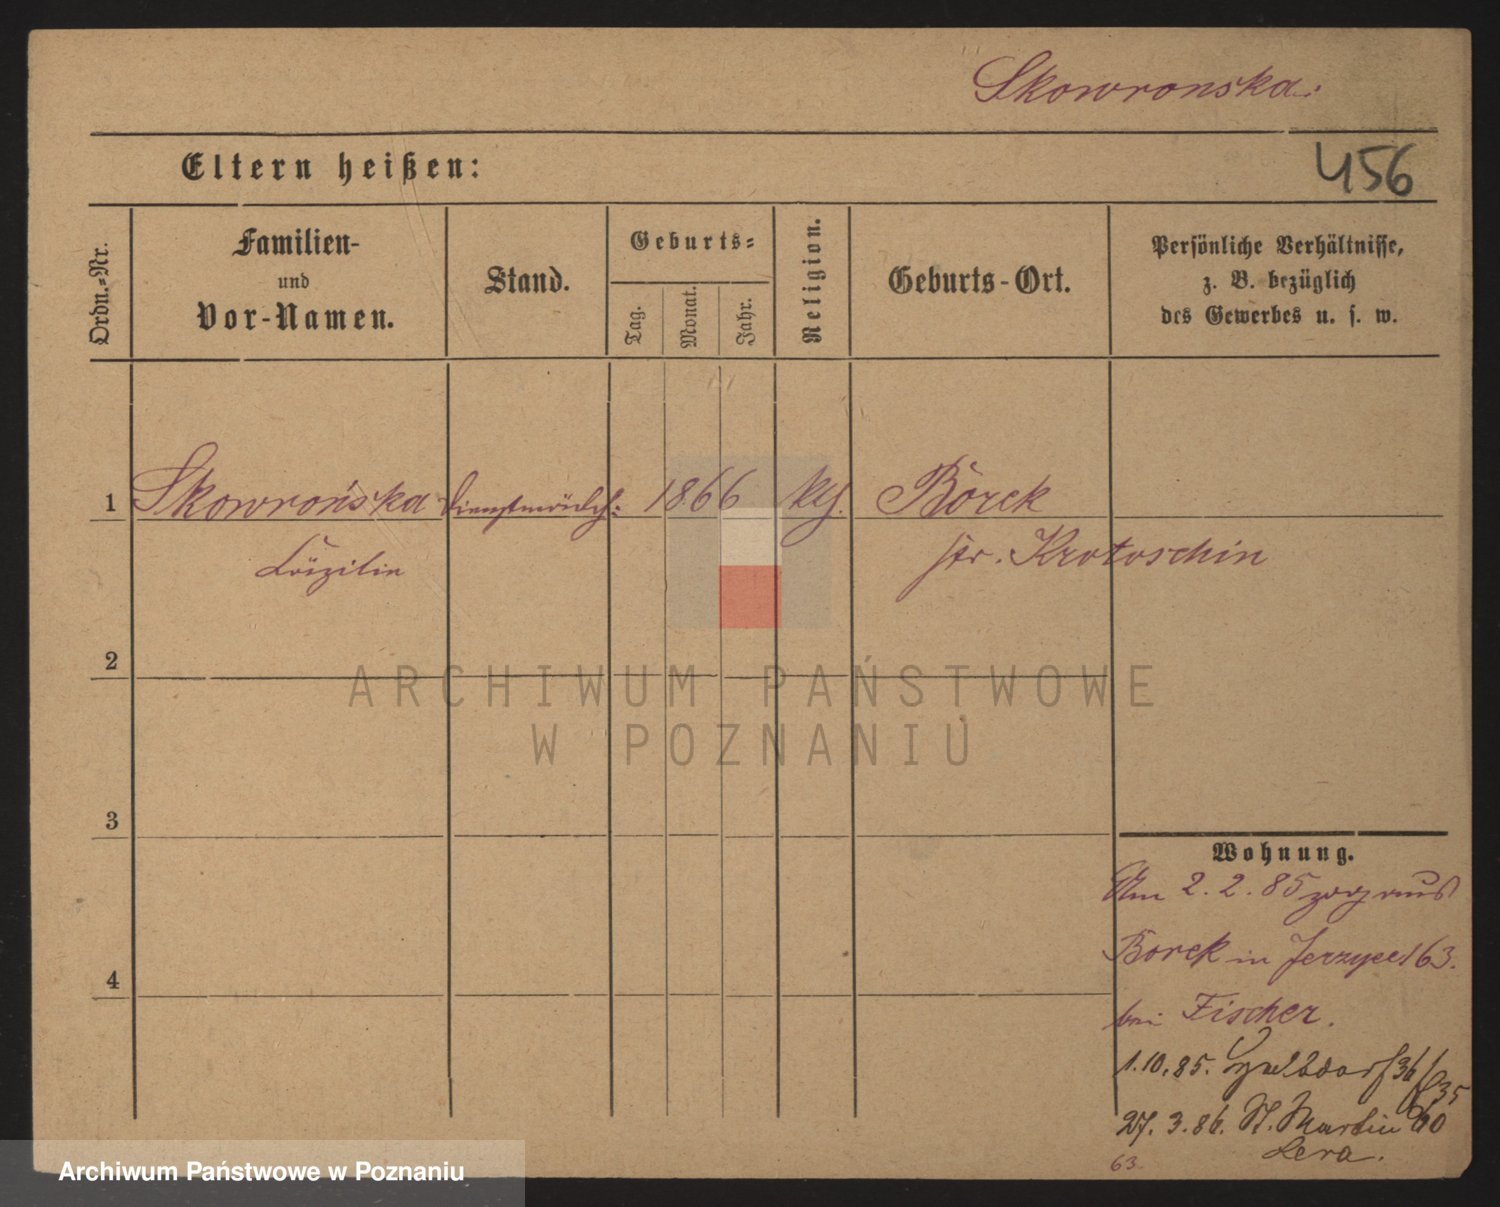 Skowronska.
Eltern heißen:
456
Ordn.-Nr.
Familien-
und
Vor-Namen.
Stand.
Geburts-
Tag.
Monat.
Jahr.
Religion.
Geburts-Ort.
Persönliche Verhältnisse,
z. B. bezüglich
des Gewerbes u. s. w.
1 Skowrońska 1866 Borek
Kr. Krotoschin
2
ARCHIWUM PAŃSTWOWE
W POZNANIU
3
Wohnung.
Am 2. 2. 85 zog aus
Borek in Jerzyce 163.
bei Fischer.
1.10.85.
27. 3. 86. St. Martin 60
63.
Archiwum Państwowe w Poznaniu
4